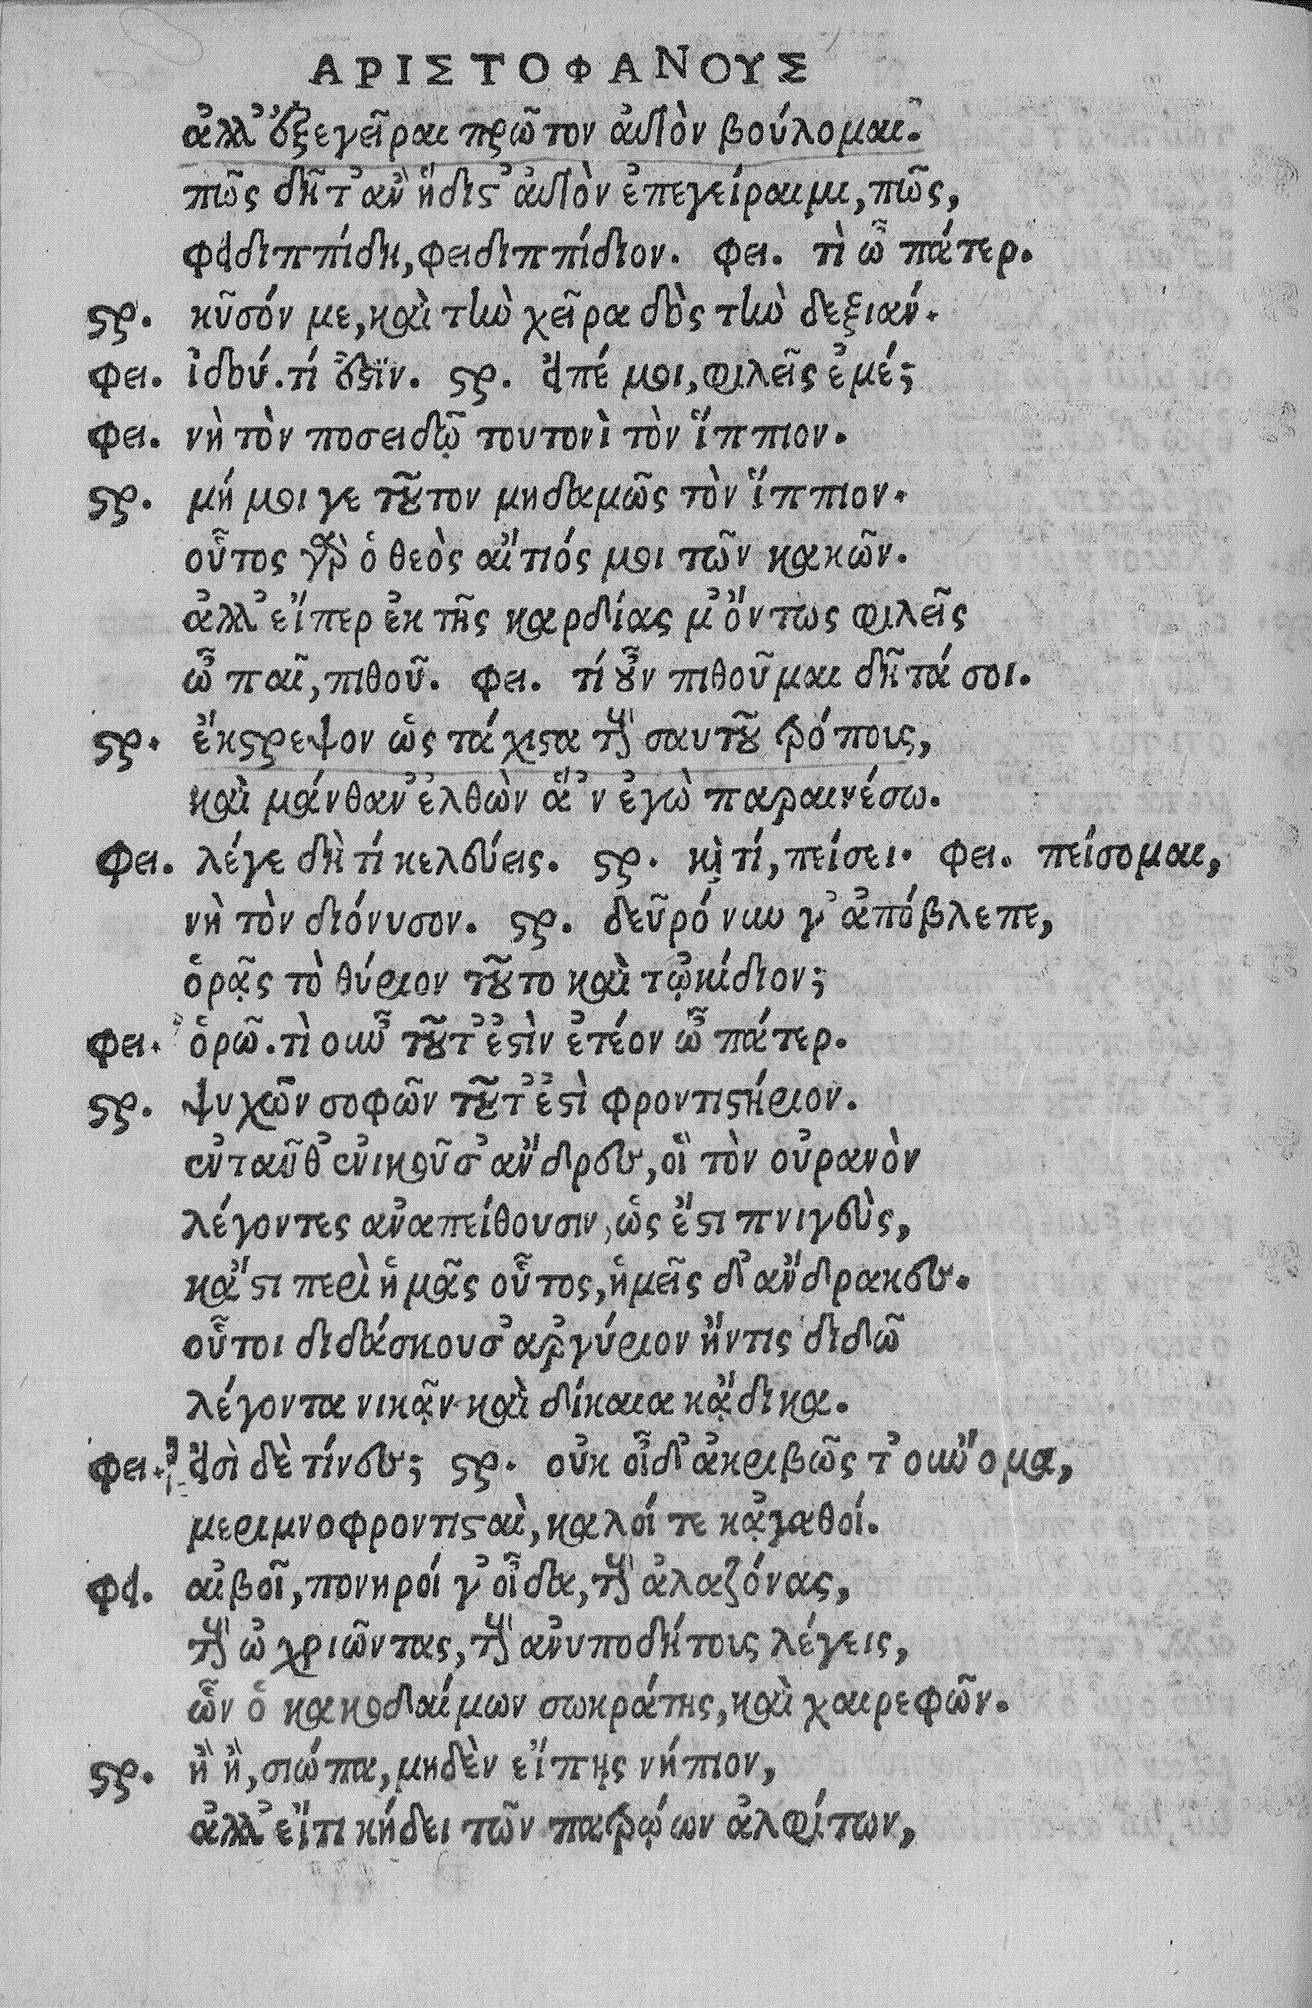 ΑΡΙΣΤΟΦΑΝΟΥΣ
ἀλλ' ἐξεγεῖραι πρῶτον αὐτὸν βούλομαι.
πῶς δῆτ' ἂν ἥδιστ' αὐτὸν ἐπεγείραιμι, πῶς,
φειδιππίδη, φειδιππίδιον. φει. τὶ ὦ πάτερ.
ςρ. κῦσόν με, καὶ τὴν χεῖρα δὸς τὴν δεξιάν.
φει. ἰδού. τί ἔστιν. ςρ. εἰπέ μοι, φιλεῖς ἐμέ;
φει. νὴ τὸν ποσειδῶ τουτονὶ τὸν ἵππιον.
ςρ. μή μοι γε τοῦτον μηδαμῶς τὸν ἵππιον.
οὗτος γὰρ ὁ θεὸς αἴτιός μοι τῶν κακῶν.
ἀλλ' εἴπερ ἐκ τῆς καρδίας μ' ὄντως φιλεῖς
ὦ παῖ, πιθοῦ. φει. τί οὖν πιθοῦμαι δῆτά σοι.
ςρ. ἔκστρεψον ὡς τάχιστα τοὺς σαυτοῦ τρόπους,
καὶ μάνθαν' ἐλθὼν ἃ 'ν ἐγὼ παραινέσω.
φει. λέγε δὴ τί κελεύεις. ςρ. καὶ τί, πείσει. φει. πείσομαι,
νὴ τὸν διόνυσον. ςρ. δεῦρό νυν γ' ἀπόβλεπε,
ὁρᾷς τὸ θύριον τοῦτο καὶ τῳκίδιον;
φει. ὁρῶ. τὶ οὖν τοῦτ' ἐστὶν ἐτέον ὦ πάτερ.
ςρ. ψυχῶν σοφῶν τοῦτ' ἐστὶ φροντιστήριον.
ἐνταῦθ' ἐνικοῦσ' ἄνδρες, οἳ τὸν οὐρανὸν
λέγοντες ἀναπείθουσιν, ὡς ἔστι πνιγεὺς,
κἄστι περὶ ἡμᾶς οὗτος, ἡμεῖς δ' ἄνδρακες.
οὗτοι διδάσκουσ' ἀργύριον ἤντις διδῶ
λέγοντα νικᾷν καὶ δίκαια κᾄδικα.
φει. εἰσὶ δὲ τίνες; ςρ. οὐκ οἶδ' ἀκριβῶς τ' οὔνομα,
μεριμνοφροντισταὶ, καλοί τε κᾀγαθοί.
φει. αἰβοῖ, πονηροί γ' οἶδα, τοὺς ἀλαζόνας,
τοὺς ὠχριῶντας, τοὺς ἀνυποδήτους λέγεις,
ὧν ὁ κακοδαίμων σωκράτης, καὶ χαιρεφῶν.
ςρ. ἢ ἢ, σιώπα, μηδὲν εἴπῃς νήπιον,
ἀλλ' εἴ τι κήδει τῶν πατρῴων ἀλφίτων,